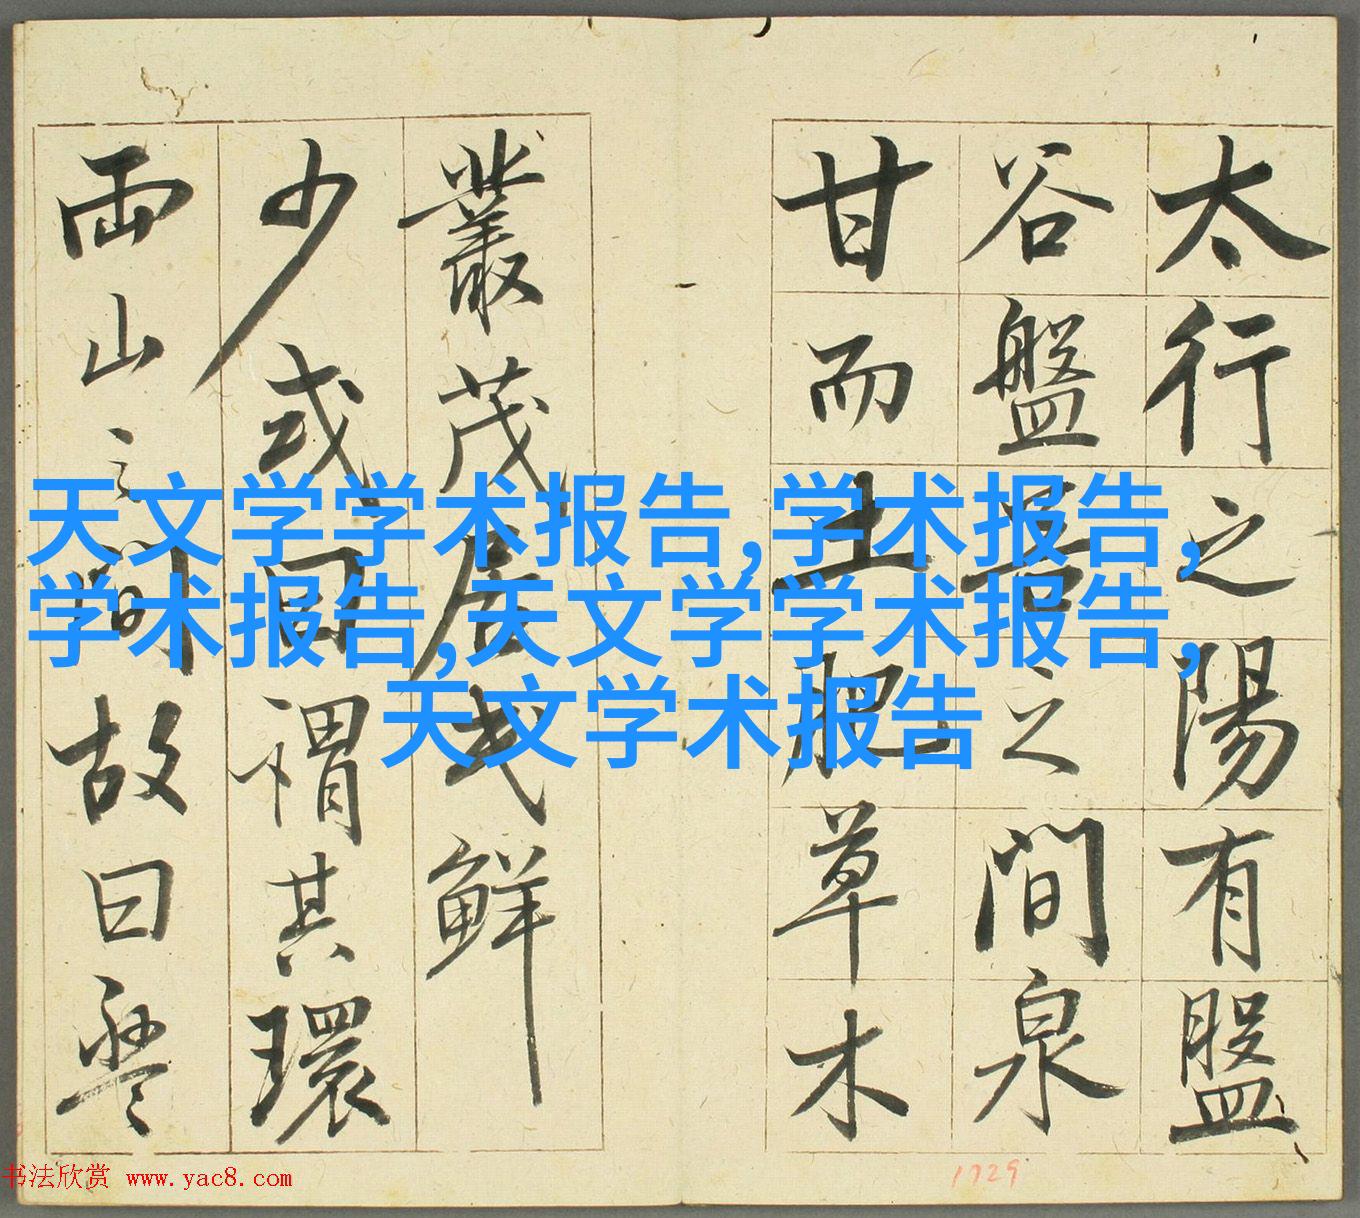 太行之陽有盤
谷盤谷之間泉
甘而土肥草木
叢茂居民鮮
少或曰謂其環
兩山之間故曰盤
天文学学术报告,学术报告,
学术报告,天文学学术报告,
天文学术报告
书法欣赏 www.yac8.com
1729